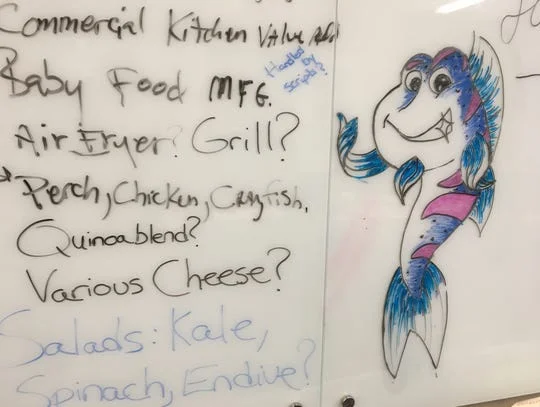 Commercial Kitchen Value Add
Baby Food MFG.
Handled
by
scripts?
Air Fryer? Grill?
→ Perch, Chicken, Crayfish,
Quinoa blend?
Various Cheese?
Salads: Kale,
Spinach, Endive?